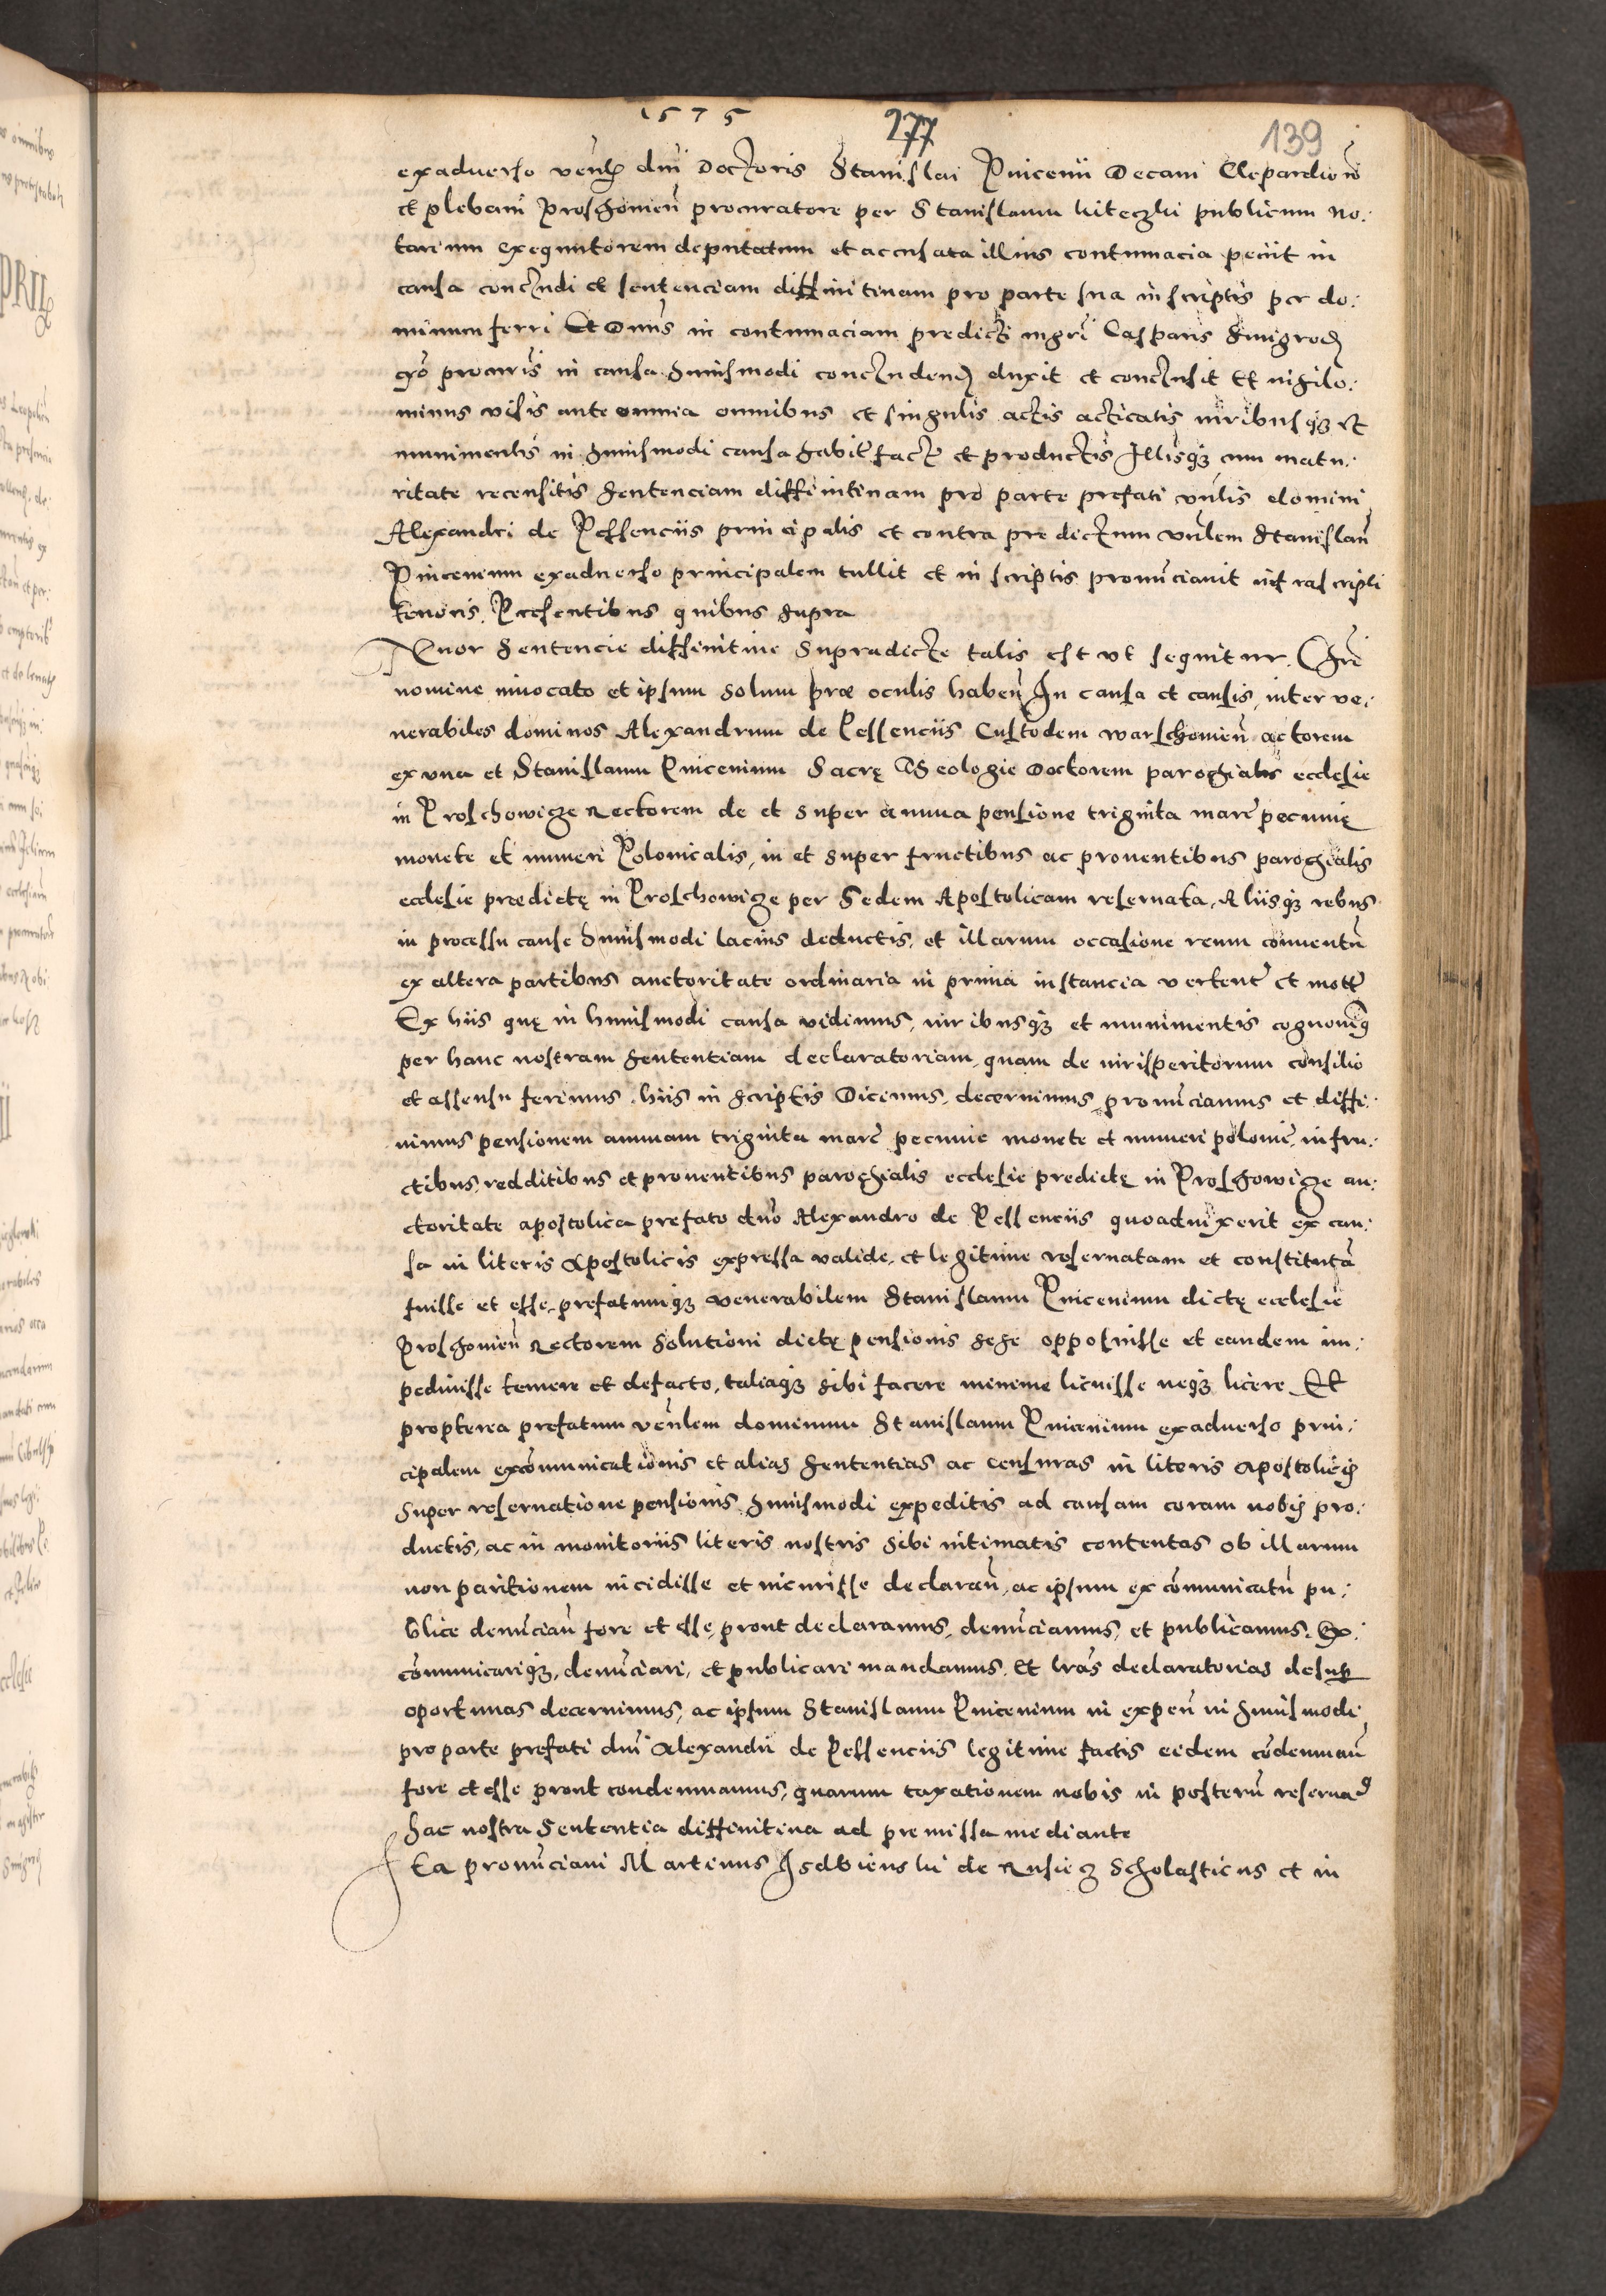 1575
277
139
exaduerso venlis dni Doctoris Stanislai Pniceuii Decani Clepardien
et plebani Proshouien procuratore per Stanislaum kiteczki publicum no:
tarium exequutorem deputatum et accusata illius contumacia peciit in
causa concludi et sentenciam diffinitiuam pro parte sua in scriptis per do:
minum ferri Et Dnus in contumaciam predicti mgri Casparis Smigrod
procuris in causa huiusmodi concludend duxit et conclusit Et nihilo:
minus visis ante omnia omnibus et singulis actis acticatis iuribusq3 et
munimentis in huiusmodi causa habit fact et productis Illisq3 cum matu:
ritate recensitis sentenciam diffinitiuam pro parte prefati vnlis domini
Alexandri de Pessenciis principalis et contra predictum vnlem Stanislau
Pniceuium exaduerso principalem tullit et in scriptis pronunciauit infrascripti
tenoris. Presentibus quibus supra
Tenor Sentencie diffinitiue Supradicte talis est vt sequitur. Chri
nomine inuocato et ipsum solum præ oculis haben In causa et causis, inter ve:
nerabiles dominos Alexandrum de Pessenciis Custodem warschouien actorem
ex vna et Stanislaum Pniceuium Sacrę Theologie Doctorem parochialis ecclesie
in Proschowicze Rectorem de et super annua pensione triginta marc pecunię
monete et numeri Polonicalis, in et super fructibus ac prouentibus parochialis
ecclesie predictę in Proschowicze per Sedem Apostolicam reseruata, Aliisq3 rebus
in processu cause huiusmodi lacius deductis, et illarum occasione reum conuentu
ex altera partibus auctoritate ordinaria in prima instancia vertent et mott
Ex hiis quę in huiusmodi causa vidimus, iuribusq3 et munimentis cognouimus
per hanc nostram sententiam declaratoriam, quam de iurisperitorum consilio
et assensu ferimus hiis in scriptis Dicimus, decernimus pronunciamus et diffi:
nimus pensionem annuam triginta marc pecunie monete et numeri polonic, in fru:
ctibus, redditibus et prouentibus parochialis ecclesie predictę in Proshowicze au:
ctoritate apostolica prefato dno Alexandro de Pessenciis quoaduixerit ex cau:
sa in literis Apostolicis expressa valide, et legitime reseruatam et constituta
fuisse et esse, prefatumq3 venerabilem Stanislaum Pniceuium dictę ecclesie
Proshouien Rectorem solutioni dictę pensionis sese opposuisse et eandem im:
pediuisse temere et defacto, taliaq3 sibi facere minime licuisse neq3 licere Et
propterea prefatum venlem dominum Stanislaum Pniceuium exaduerso prin:
cipalem excomunicationis et alias sententias ac censuras in literis Apostolicis
super reseruatione pensionis huiusmodi expeditis ad causam coram nobis pro:
ductis, ac in monitoriis literis nostris sibi intimatis contentas ob illarum
non paritionem incidisse et incurisse declaran, ac ipsum excomunicatu pu:
blice denuncian fore et esse, prout declaramus, denunciamus, et publicamus. Ex:
comunicariq3, denunciari, et publicari mandamus. Et lras declaratorias desup
oportunas decernimus, ac ipsum Stanislaum Pniceuium in expen in huiusmodi
pro parte prefati dni Alexandri de Pessenciis legitime factis eidem condemnan
fore et esse prout condemnamus, quarum taxationem nobis in posteru reseruad
hac nostra Sententia diffinitiua ad premissa mediante
Ita pronunciaui Martinus Isdbienski de Rusiecz Scholasticus et in